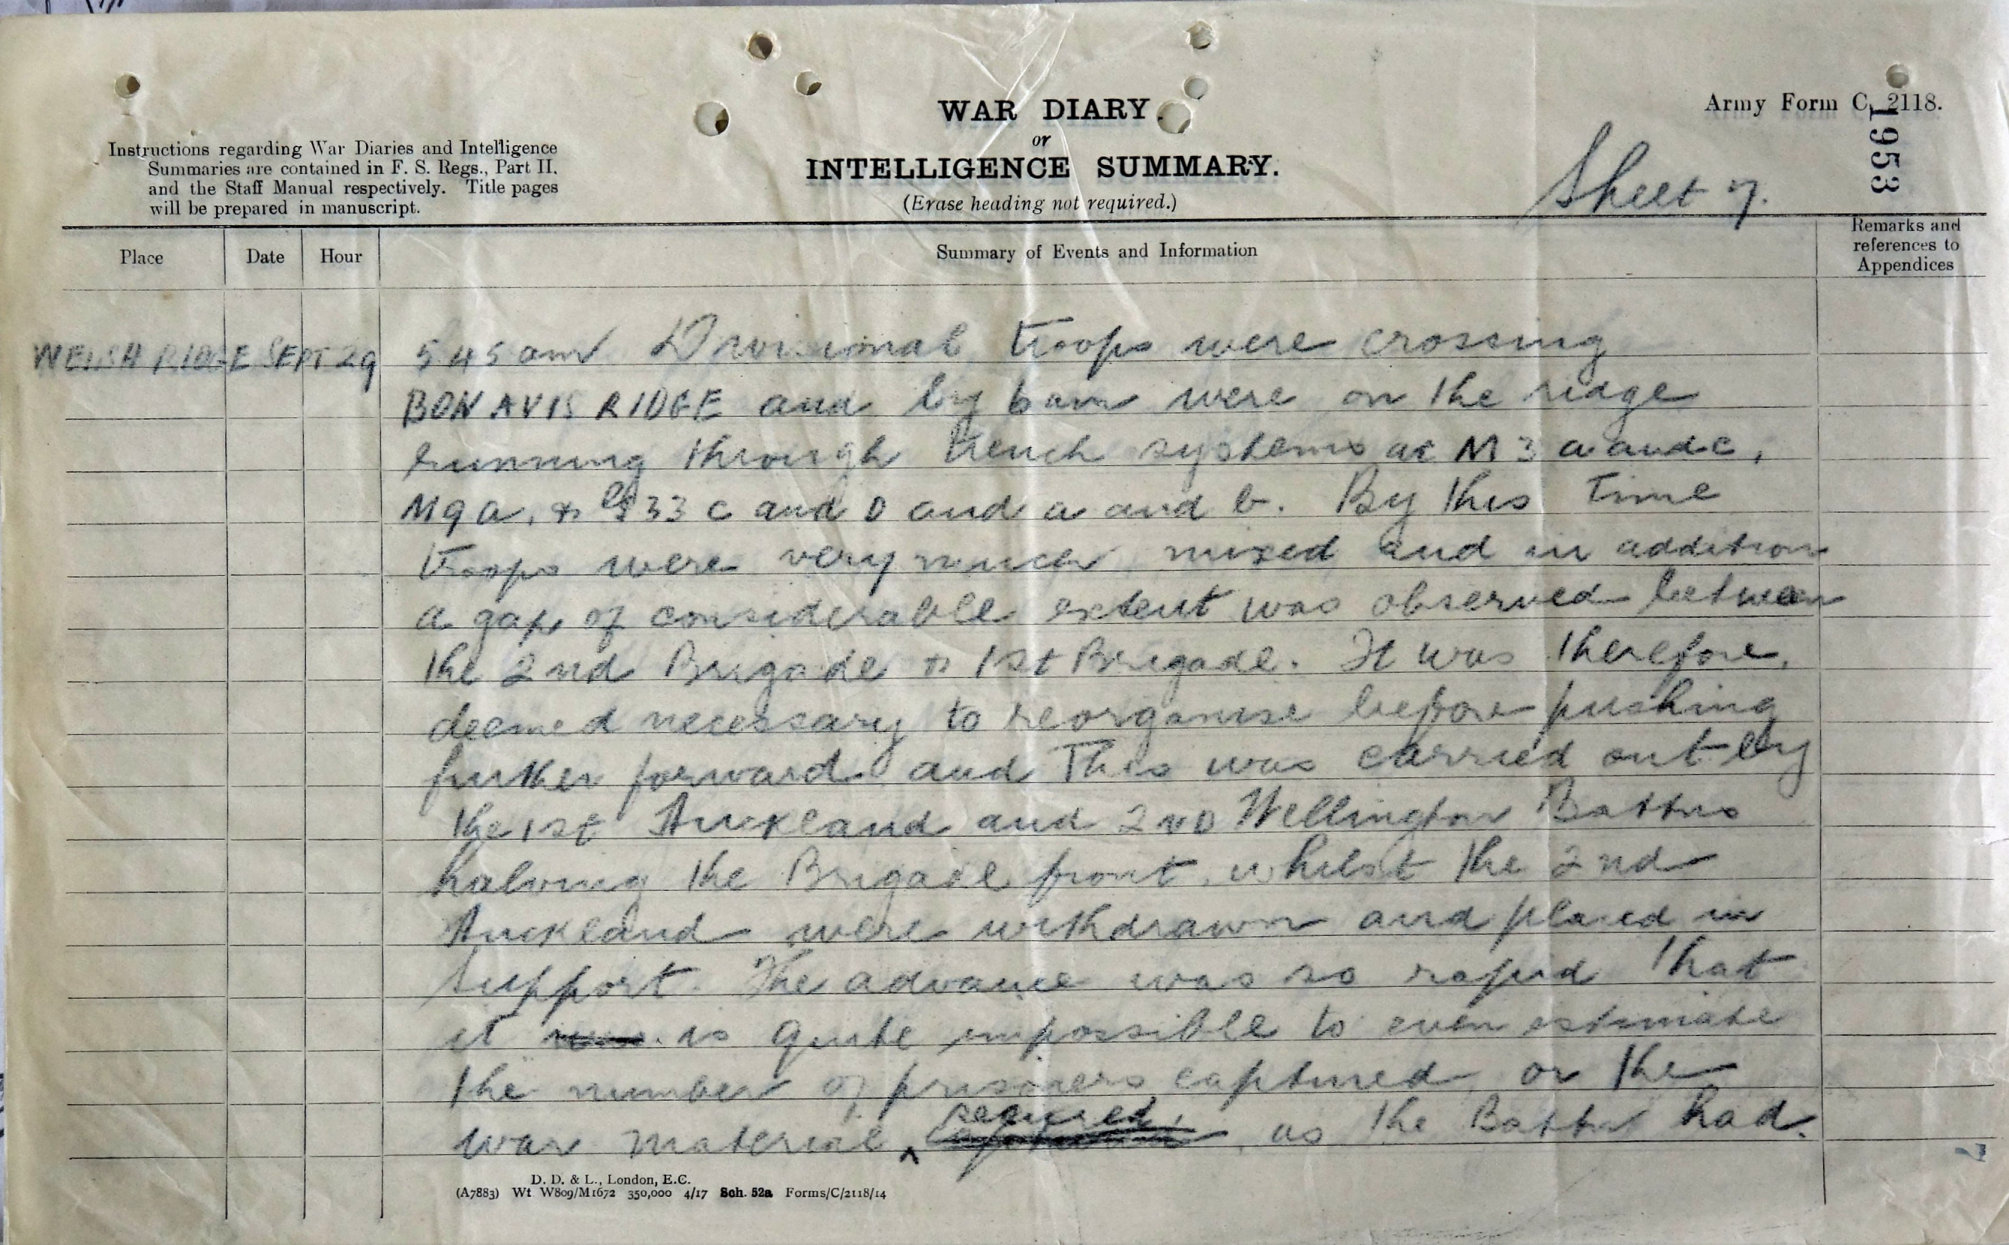 WAR DIARY
or
INTELLIGENCE SUMMARY.
(Erase heading not required.)
Army Form C. 2118.
1953
Instructions regarding War Diaries and Intelligence
Summaries are contained in F. S. Regs., Part II.
and the Staff Manual respectively. Title pages
will be prepared in manuscript.
Sheet 7.
Place Date Hour Summary of Events and Information Remarks and references to Appendices
WELSH RIDGE SEPT 29 5 45 am Divisional troops were crossing
BONAVIS RIDGE and by 6 am were on the ridge
running through trench systems at M 3 a and c,
M 9 a. & 33 c and D and a and b. By this time
troops were very much mixed and in addition
a gap of considerable extent was observed between
the 2nd Brigade & 1st Brigade. It was therefore
deemed necessary to reorganise before pushing
further forward and This was carried out by
the 1st Auckland and 2ND Wellington Battns
halving the Brigade front whilst the 2nd
Auckland were withdrawn and placed in
support. The advance was so rapid that
it was is quite impossible to even estimate
the number of prisoners captured or the
war material secured, as the Battn had
7
D. D. & L., London, E.C.
(A7883) Wt W809/M1672 350,000 4/17 Sch. 52a Forms/C/2118/14